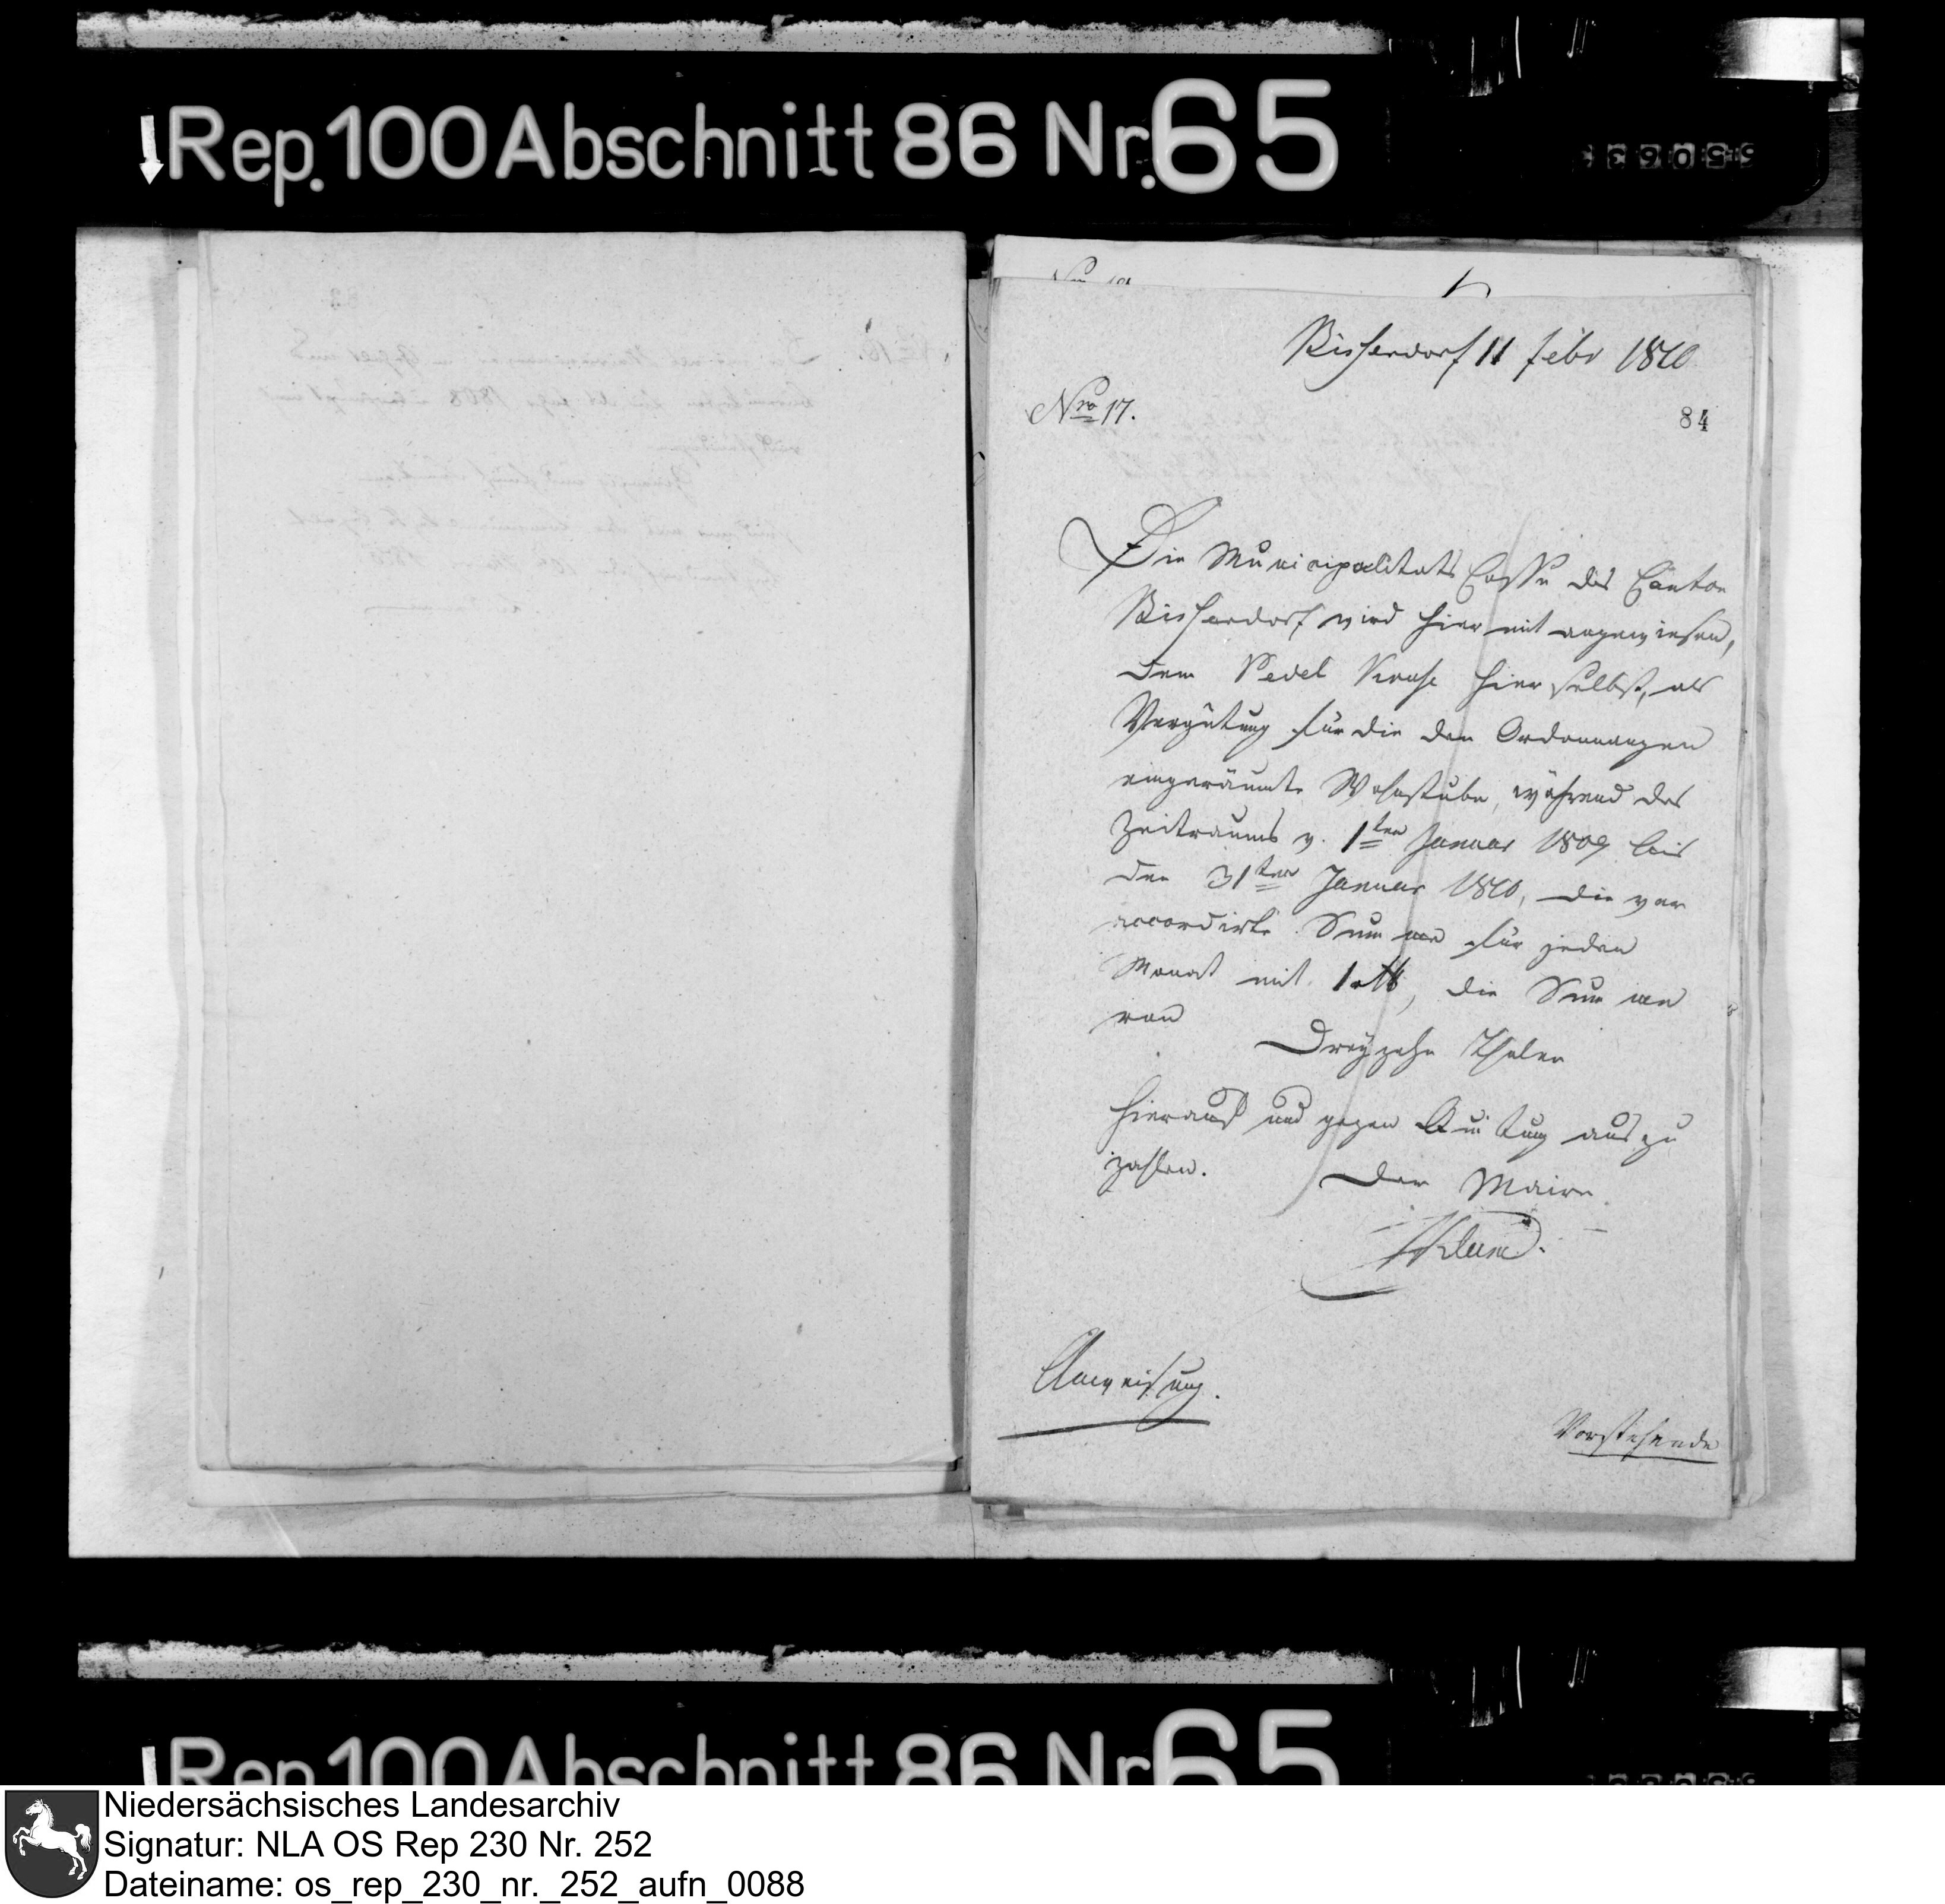 Rep.100 Abschnitt 86 Nr.65
Bissendorf 11 Febr 1810
Nro 17.
84
Die Municipalitats Casse des Canton
Bissendorf wird hier mit angewiesen,
dem Pedel Kruse hier selbst, als
Vergütung für die den Ordonnanzen
eingeräumte Wohnstube, während des
Zeitraums v. 1ten Januar 1809 bis
den 31ten Januar 1810, die ver
accordirte Summe für jeden
Monat mit 1 rtl, die Summe
von
Dreyzehn Thaler
hierauf und gegen Quitung aus zu
zahlen.
Der Maire
Anweisung.
Vorstehende
Rep.100 Abschnitt 86 Nr.65
Niedersächsisches Landesarchiv
Signatur: NLA OS Rep 230 Nr. 252
Dateiname: os_rep_230_nr._252_aufn_0088